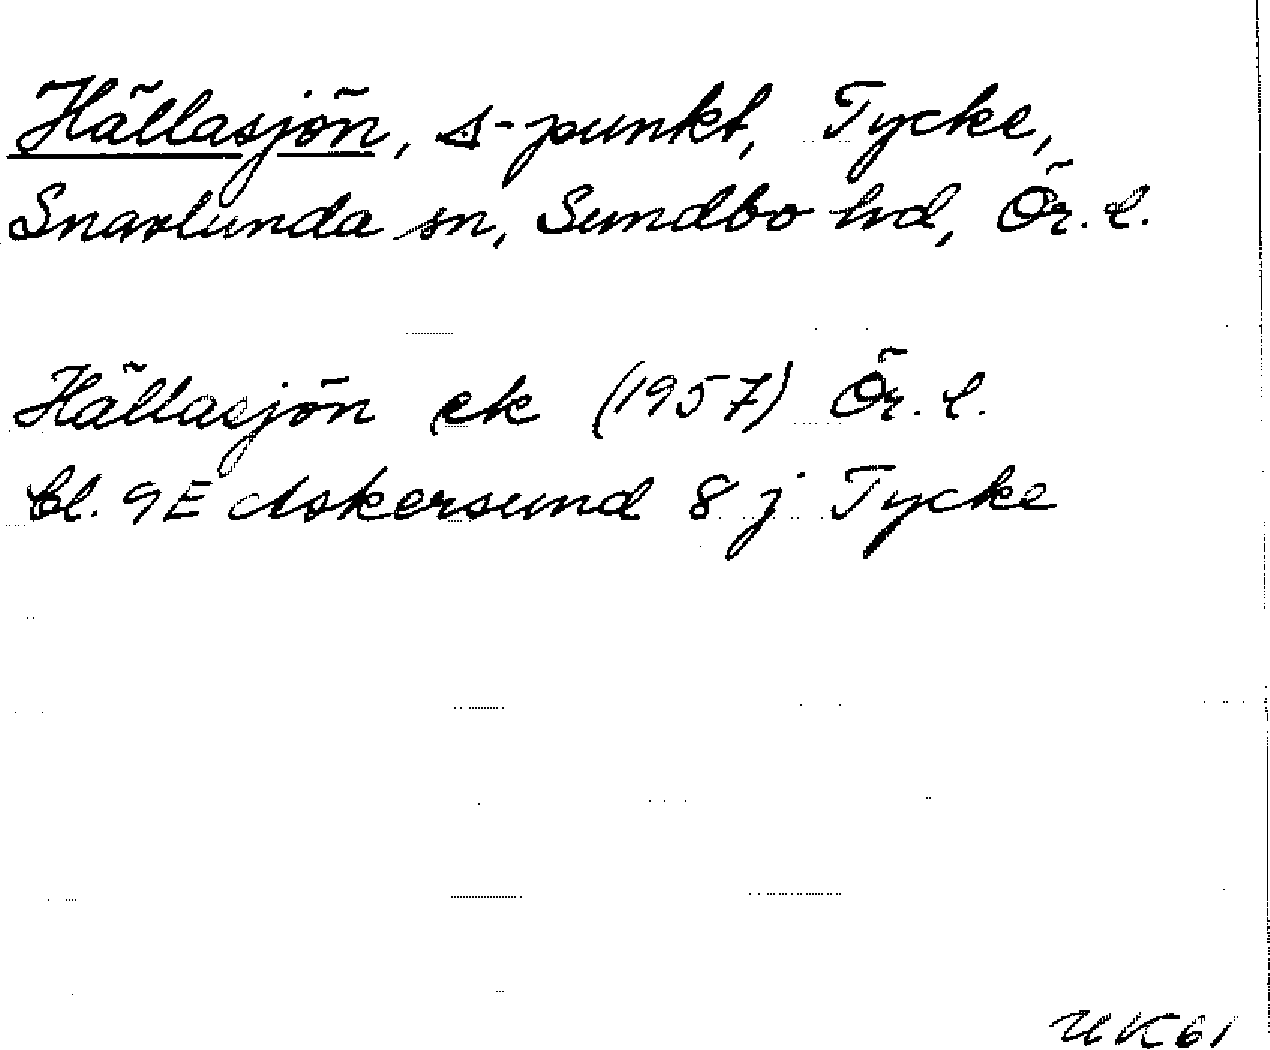 Hällasjön, s-punkt, Tycke,
Snavlunda sn, Sundbo hd, Ör. l.
Hällasjön ek (1957) Ör. l.
bl. 9E Askersund 8 j Tycke
UK61